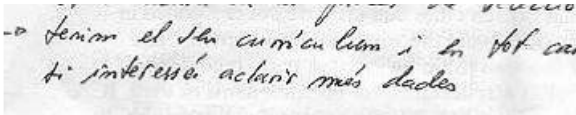 tenim el seu currículum i en tot cas
si interessés aclarir més dades